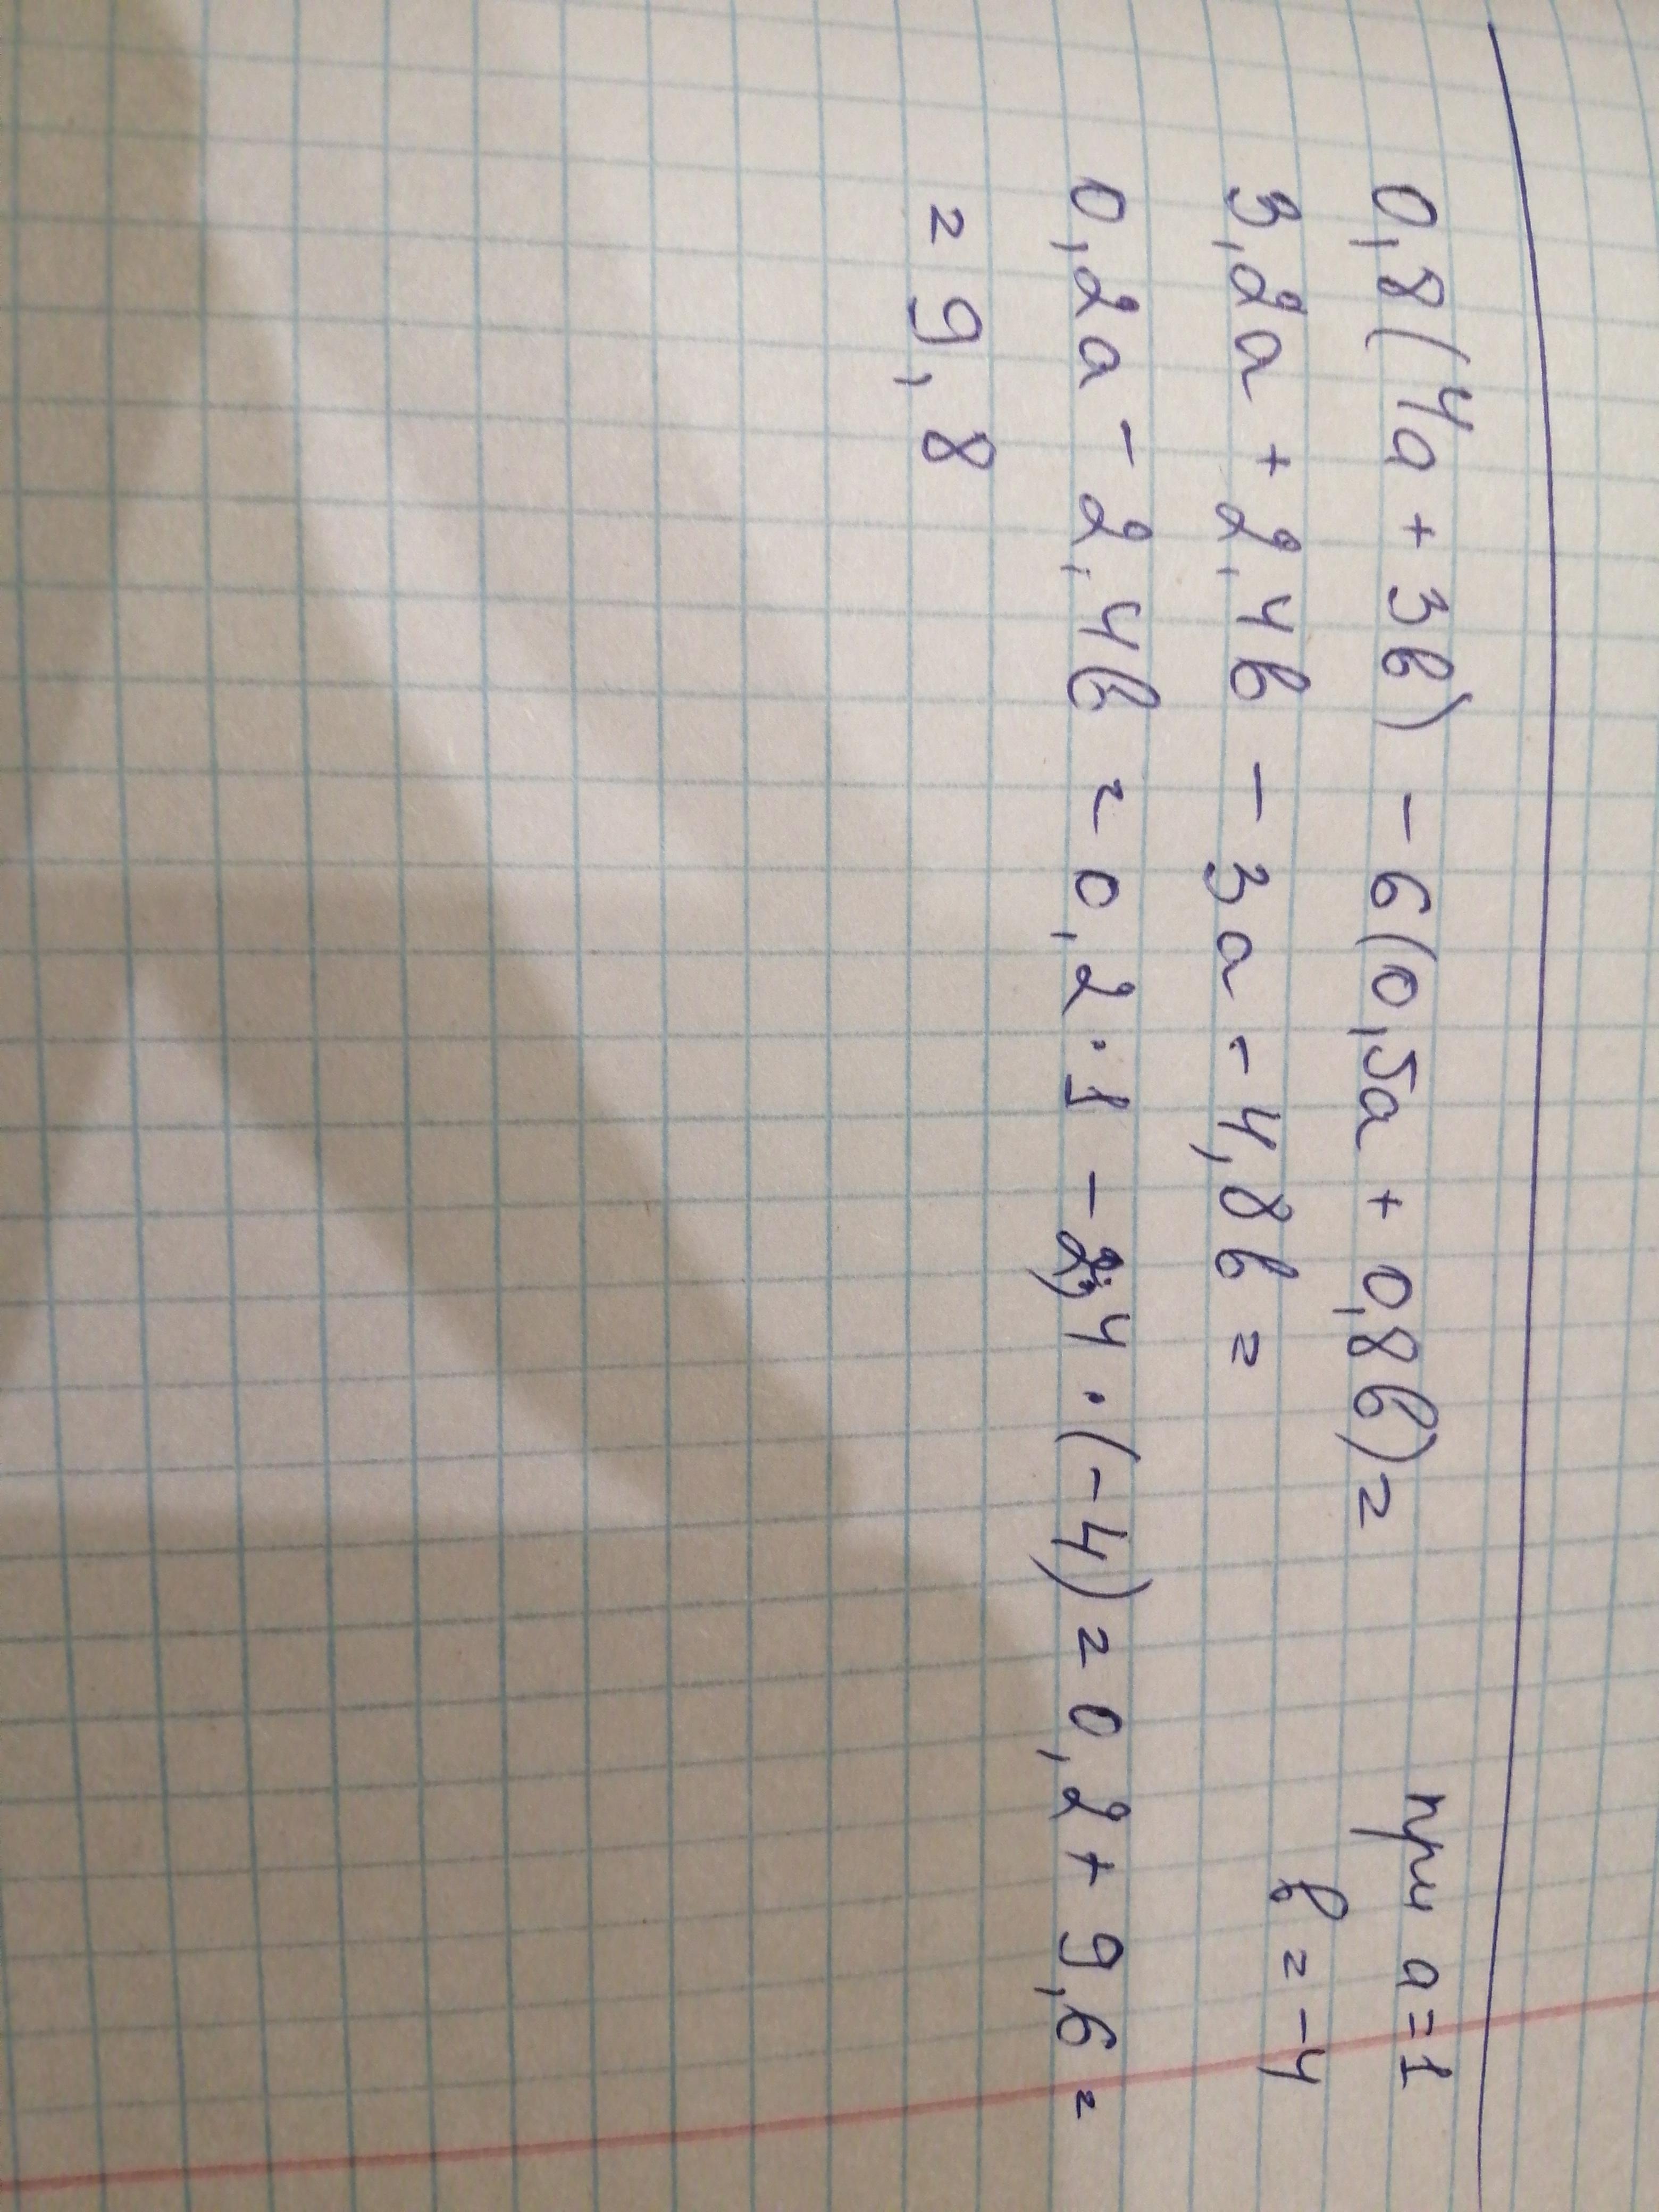 0,8(4a + 3в) - 6(0,5a + 0,8в) = при a = 1
в = -4
3,2a + 2,4в - 3a - 4,8в =
0,2a - 2,4в = 0,2 · 1 - 2,4 · (-4) = 0,2 + 9,6 =
= 9,8